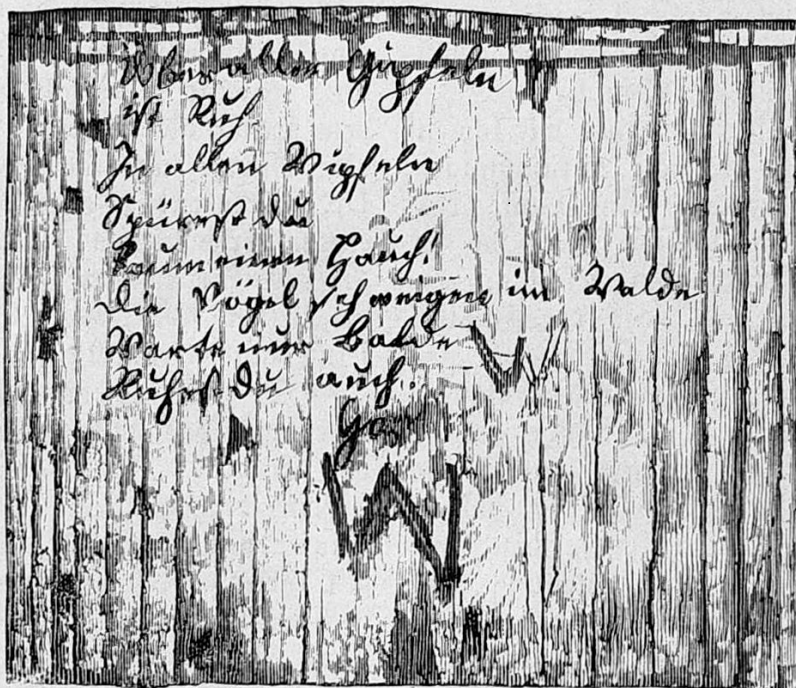 Über allen Gipfeln
ist Ruh
In allen Wipfeln
Spürest du
Kaum einen Hauch!
Die Vögel schweigen im Walde
Warte nur Balde W
Ruhest Du auch.
W